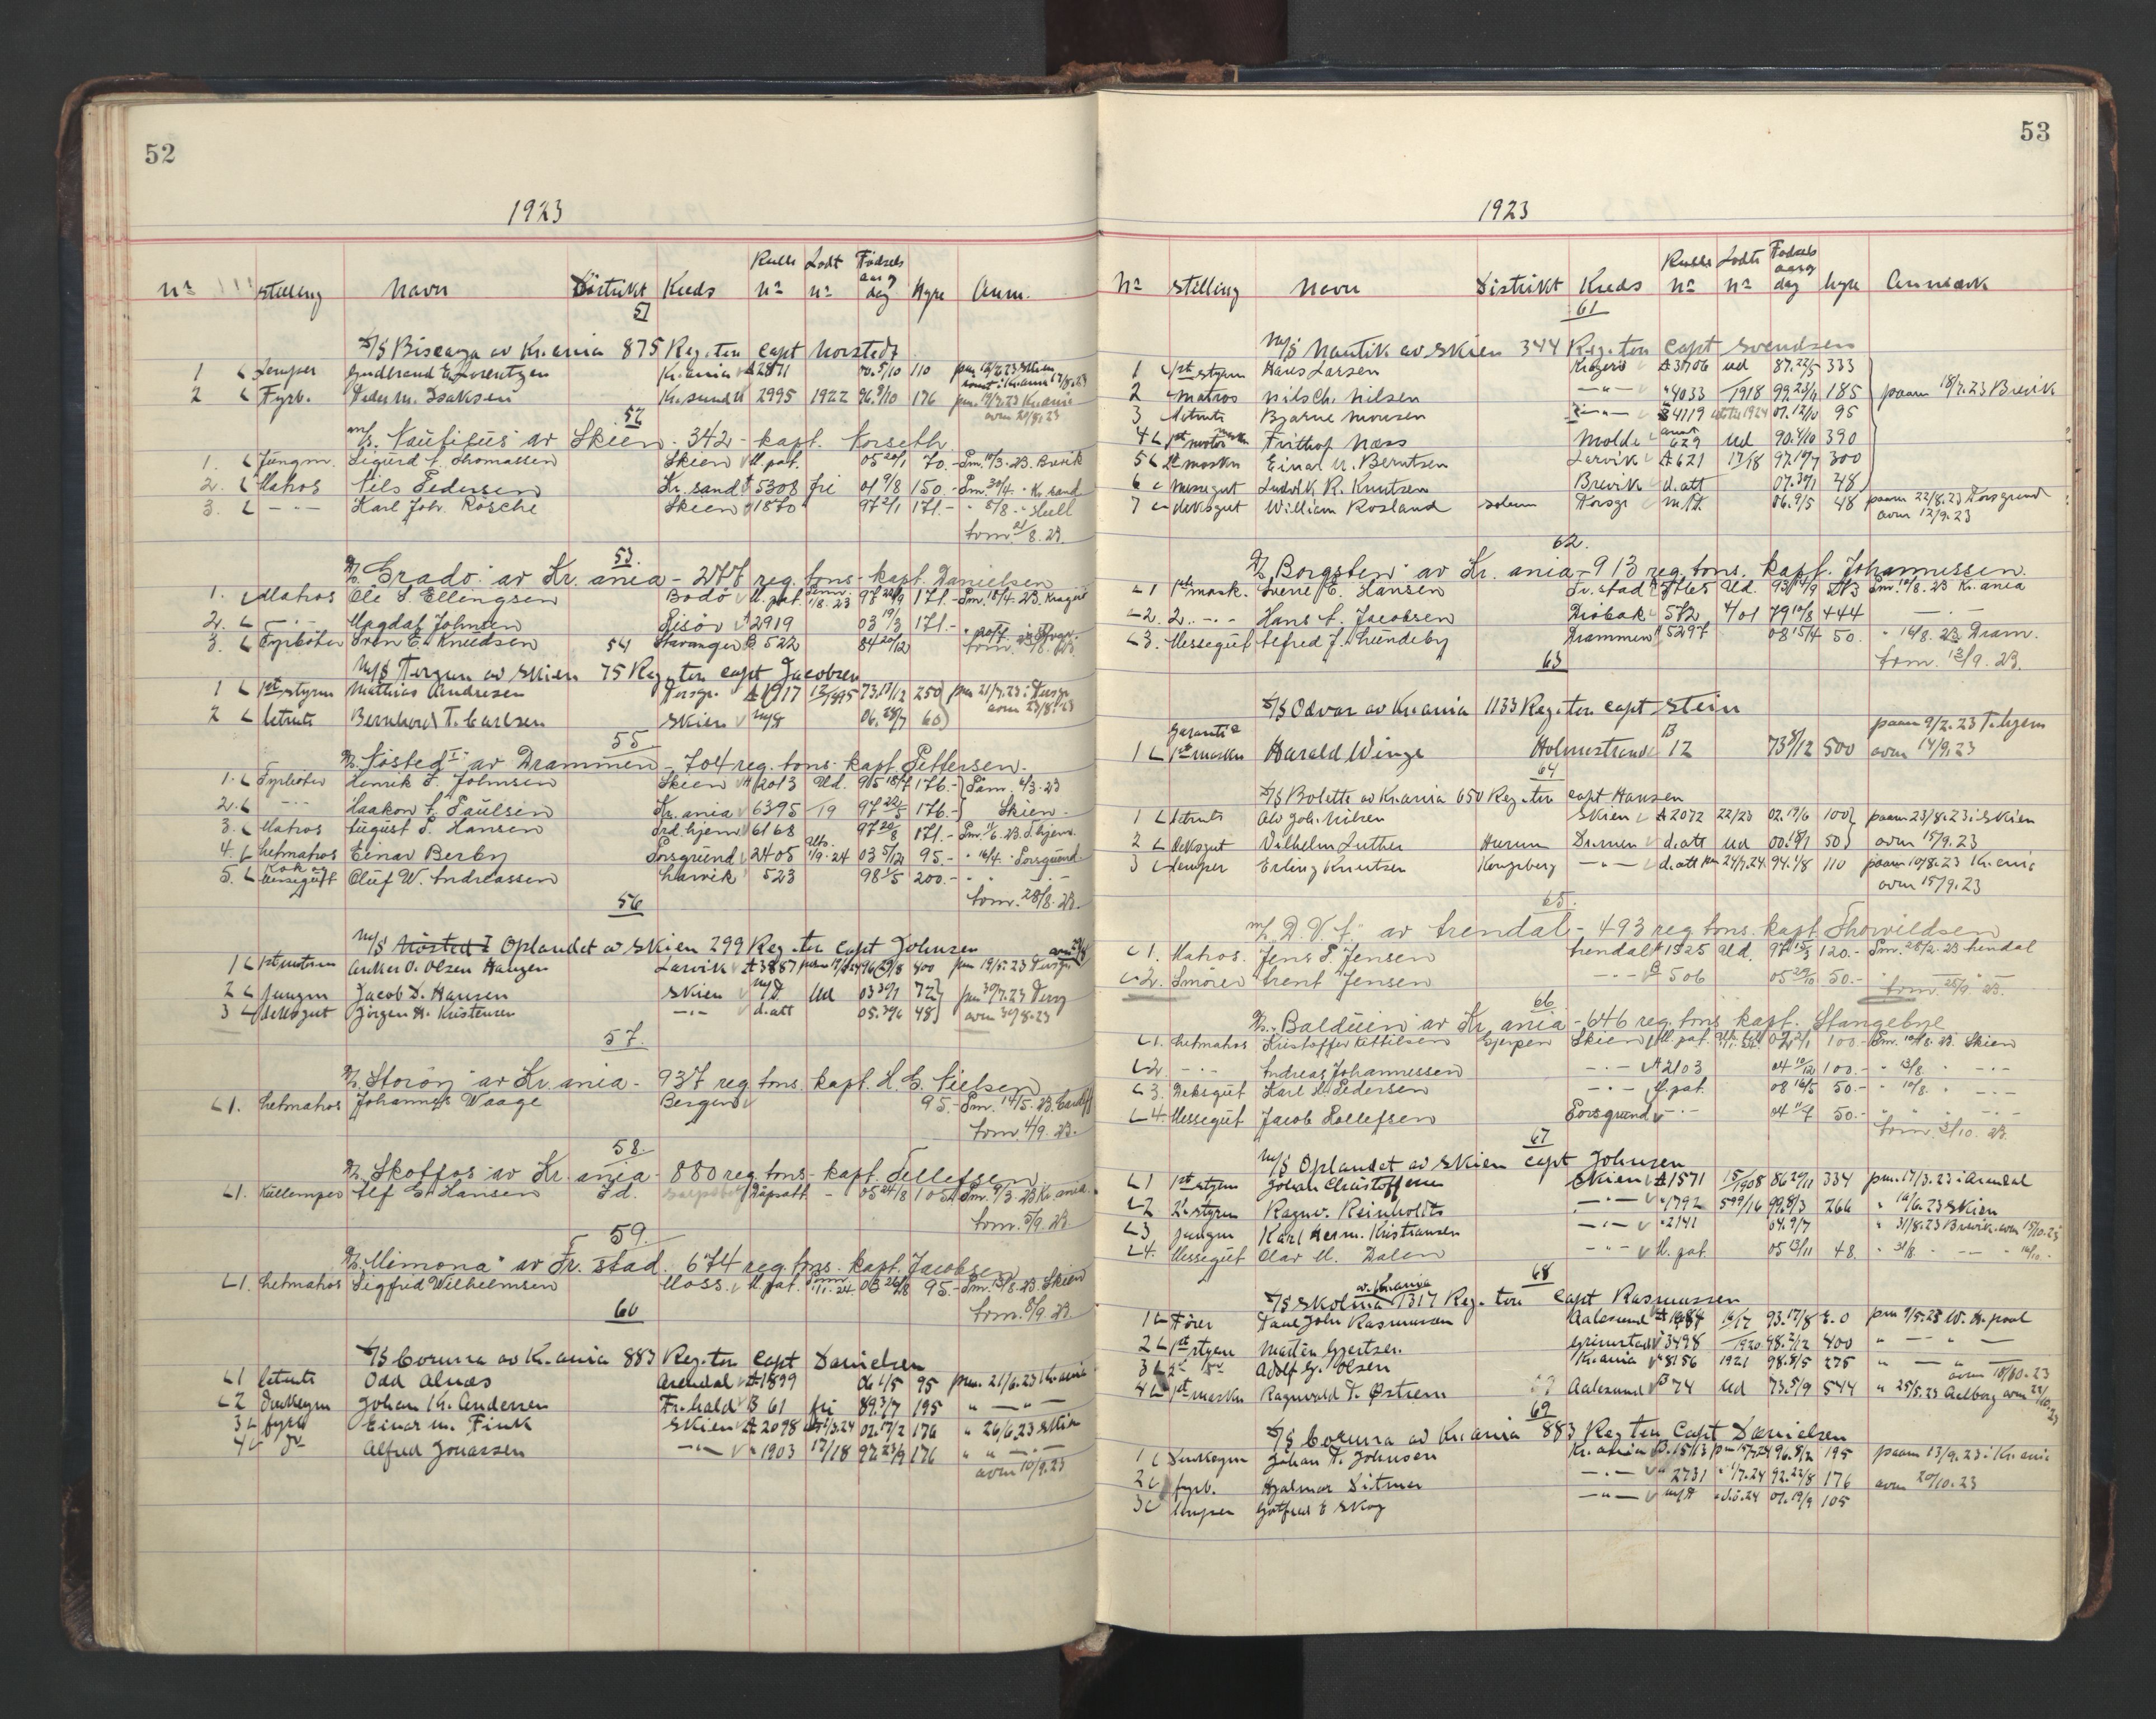 52
1923
No stilling Navn Distrikt Kreds Rulle No Lodt No Fødsels aar og dag Hyre Anm.
51
S/S Biscaya av Kr.ania 875 Reg. ton Capt Norstedt
1 Lemper Gudbrand E. Lorentzen Kr.ania A 2871 00.5/10 110 pm. 12/7.23 Skien
2 Fyrb. Peder M. Isaksen Kr.sund 2995 1922 96.9/10 176 avm 20/8.23
52
M/S. "Nautilus" av Skien - 342 - kapt. Norseth
1. Jungm. Sigurd A. Thomassen Skien M. pat. 05 20/1 70.- Pm. 10/3-23. Brevik
2. Matros Nils Pedersen Kr. sand 5308 fri 01 9/8 150.- Pm. 30/4. - Kr. sand
3. - " - Karl Joh. Rösche Skien 1870 97 2/1 171.- " 8/8 - Hull
fom. 21/8. 23.
53.
"Grado" av Kr. ania - 277 reg. tons - kapt. Danielsen
1. Matros Ole S. Ellingsen Bodö M. pat. 1/8. 23 97 22/9 171.- Pm. 18/4. 23. Kragerö
2. - " - Magdal. Johnsen Risör 2919 03 19/3 171.-
3. Fyrböter Sven E. Knudsen Stavanger B. 522 84 20/12
54
M/S Torgun av Skien 75 Reg. ton Capt Jacobsen
1 1st styrm Mathias Andresen Porsgr. A 1917 12/1895 73.13/12 250 pm 21/7.23 i Porsgr
2 Letmts Bernhard T. Carlsen Skien 06. 28/7 60 avm 23/8.23
55
"Nösted I" av Drammen - 704 reg. tons - kapt. Pettersen.
1. Fyrböter Henrik P. Johnsen Skien 2013 Ud. 95 18/7 176.- Påm. 6/3-23
2. - " - Haakon A. Paulsen Kr. ania 6395 19 97 22/5 176.- Skien.
3. Matros August P. Hansen Trd.hjem 6168 97 20/8 171.- Pm. 11/6. 23. T.hjem.
4. Letmatros Einar Berby Porsgrund 2405 1/9-24 03 5/12 95.- " 16/4. Porsgrund
5. Kok Messegutt Oluf W. Andreassen Larvik 523 98 1/5 200.-
fom. 28/8. 23.
56
M/S Nösted I Oplandet av Skien 299 Reg. ton Capt Johnsen
1 1st motorm Anker O. Olsen Haugen Larvik A 3887 400 pm 19/5.23 Porsgr
2 Jungm Jacob D. Hansen Skien Ud 03 30/1 72 pm 30/7.23 Porsg
3 dekksgut Jörgen H. Kristensen - " - d.att 48 avm 30/8.23
57.
"Storöy" av Kr. ania - 937 reg tons kapt. H. G. Nielsen
1. Letmatros Johannes Waage Bergen 95.- Pm. 14/5. 23. Cardiff
fom. 4/9. 23.
58.
"Skotfos" av Kr. ania - 880 reg. tons - kapt. Tellefsen
1. Kullemper Alf E. Hansen 05 24/8 105.- Pm. 9/3 23 Kr. ania.
fom. 5/9. 23
59.
"Mimona" av Fr. stad. 674 reg. tons. kapt. Jacobsen
1. Letmatros Sigfred Wilhelmsen Moss. M. pat. 1/11. 24. 03 26/8 95.- Pm. 13/8. 23. Skien
fom. 8/9. 23
60
S/S Coruna av Kr.ania 883 Reg. ton Capt Danielsen
1 Letmts Odd Alnæs Arendal A 1899 06 1/5 95 pm. 21/6.23 Kr.ania
2 Donkeym Johan K. Andersen Fr.hald B 61 fri 89.3/7 195 " — " —
3 fyrb Einar M. Fink Skien A 2098 02.17/2 176 " 26/6.23 Skien
4 do Alfred Jonassen - " - 1903 17/18 97 23/9 176 " " — " —
avm 10/9.23
53
1923
No Stilling Navn Distrikt Kreds Rulle No Lodts No Fødsels aar og dag hyre Anmærk
61
M/S Nautik av Skien 344 Reg. ton Capt Svendsen
1 1st styrm Hans Larsen Kragerö A 3706 ud 87.22/5 333
2 matros Nils Ch. Nilsen - " - 4033 1918 99.23/11 185 paam 18/7.23 Brevik
3 Letmts Bjarne Monsen - " - 4119 1924 01.12/10 95
4 1st motor Frithof Næss Molde 629 ud 90.4/10 390
5 2t maskn Einar U. Berntsen Larvik A 621 17/18 97.19/7 300
6 messegut Ludvik R. Knutsen Brevik d.att 07.30/1 48
7 dekksgut William Rosland Solum Porsgr 06.9/5 48 paam 22/8.23 Porsgrund
avm 12/9.23
62.
"Borgsten" av Kr. ania - 913 reg. tons. kapt. Johannessen.
1 1ste mask. Sverre E. Hansen Fr. stad Pm. 10/8. 23 Kr. ania
2. 2. - " - Hans A. Jacobsen Dröbak 572 4/01 79 10/8 444 — " —
3. Messegut Alfred J. Lundeby Drammen 5297 08 15/4 50. " 16/8. 23. Dram.
fom. 13/9. 23.
63
S/S Odvar av Kr.ania 1133 Reg. ton Capt Stein
Garanti
1 1st maskn Harald Winge Holmestrand B 12 73 8/12 500 paam 9/2.23 T.hjem
avm 14/9.23
64
S/S Bolette av Kr.ania 650 Reg. ton Capt Hansen
1 Letmts Alv Joh. Nilsen Skien A 2072 22/23 02.19/6 100 paam 23/8.23 i Skien
2 dekksgut Vilhelm Luther Hurum Drammen d.att ud 00.18/1 50 avm 15/9.23
3 Lemper Erling Knutsen Kongsberg - " - d.att 24/7.24 94.1/8 110 paam 10/8.23 Kr.ania
avm 15/9.23
65.
"D. V. A." av Arendal - 493 reg. tons. kapt. Thorvildsen
1. Matros. Jens P. Jensen Arendal 1525 Ud. 97 15/3 120.- Pm. 28/2. 23 Arendal
2. Smörer Arent Jensen - " - 506 05 29/10 50.- fom. 25/9. 23.
66.
"Balduin" av Kr. ania - 646 reg. tons kapt. Stangebye
1. Letmatros Kristoffer Kittilsen Gjerpen Skien M. pat. 100.- Pm. 10/8. 23. Skien
2. - " - Andreas Johannessen - " - A 2103 04 10/12 100.- " 13/8. " - " -
3. Deksgut Karl H. Pedersen - " - M. pat. 08 16/5 50.- " 10/8. " - " -
4. Messegut Jacob Rollefsen Porsgrund - " - 04 11/7 50.- " " " - " -
fom. 3/10. 23.
67
M/S Oplandet av Skien Capt Johnsen
1 1st styrm Johan Christoffersen Skien A 1571 15/1908 86 20/11 334 pm. 17/3.23 i Arendal
2 2t styrm Ragnv. Reinholdt - " - 1792 599/16 99.8/3 266 " 16/6.23 Skien
3 Jungm Karl Herm. Kristiansen - " - 2141 04.9/7 " 31/8.23 Brevik avm 15/10.23
4. Messegut Olav M. Dalen - " - M. pat. 05 13/11 48. " 31/8. " - - "
68
av Kr.ania
S/S Skolma 1317 Reg. ton Capt Rasmussen
1 Förer Paul John Rasmussen Aalesund A 1684 16/17 93.17/8 pm 9/5.23
2 1st styrm Martin Gjertsen. Grimstad 3498 1920 98.2/12 400 " — " —
3 2t do Adolf G. Olsen Kr.ania 8156 1921 98.8/5 275 " — " — avm 18/10.23
4 1st maskn Ragnvald T. Østrem Aalesund B 74 ud 73.5/9 544 " 25/5.23 Aalborg avm 22/10.23
69
S/S Coruna av Kr.ania 883 Reg ton Capt Danielsen
1 Donkeym Johan T. Johnsen Kr.ania 96.8/2 195 paam 13/9.23 i Kr.ania
2 fyrb. Hjalmar Ditmer - " - 2731 1/7.24 92.22/8 176 avm 20/10.23
3 Lemper Gotfred E Skog - " - 07.19/9 105